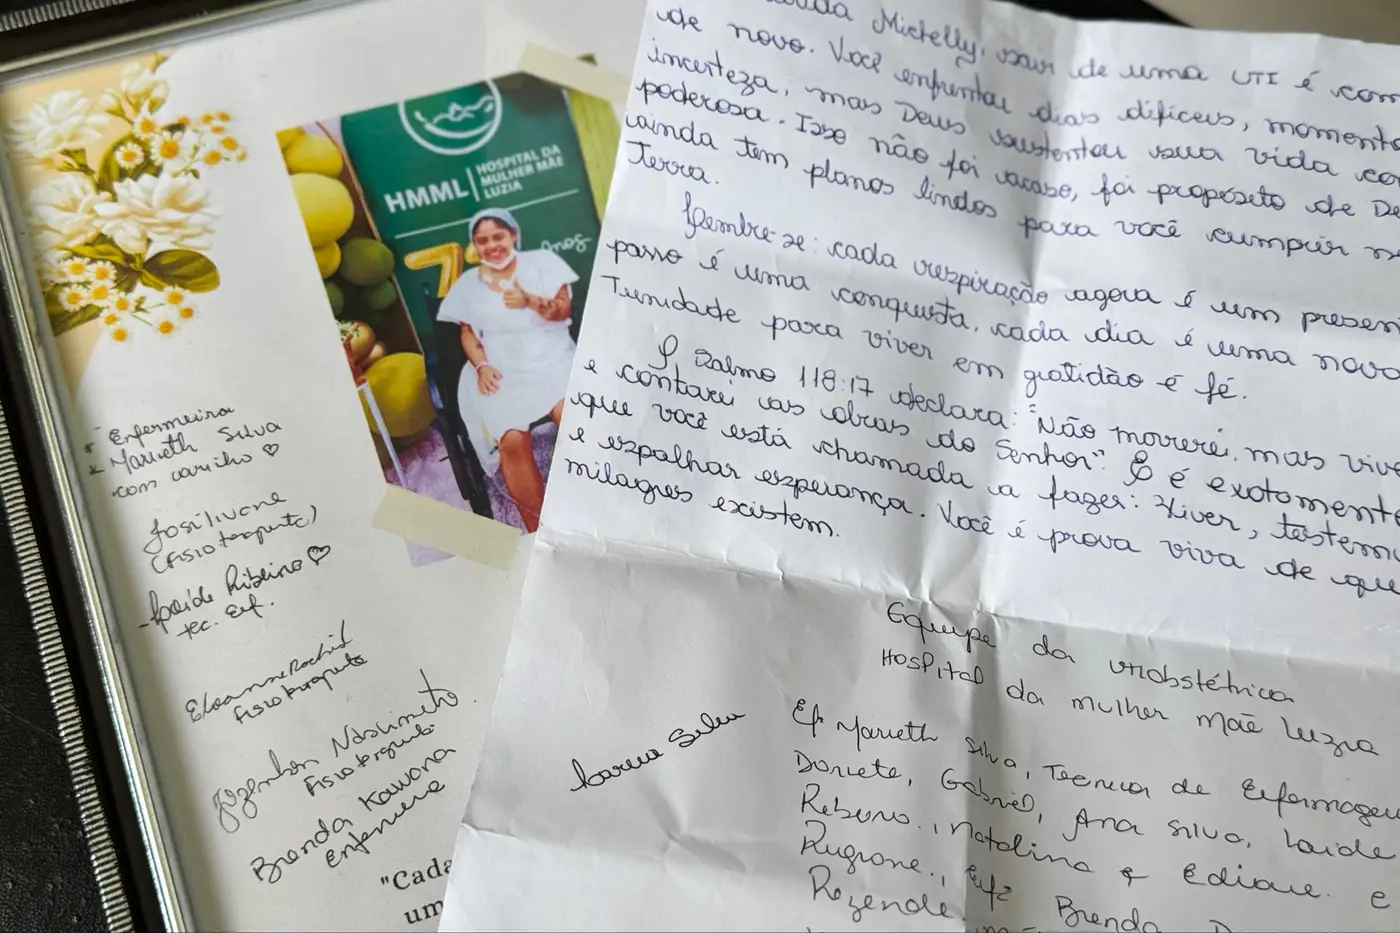 HMML
HOSPITAL DA
MULHER MÃE
LUZIA
7
anos
Enfermeira
Marieth Silva
com carinho ♡
Josilivane
(fisioterapeuta)
Laide Ribeiro ♡
tec. Enf.
Fisioterapeuta
Nascimento
Fisioterapeuta
Brenda Kawona
Enfermeira
"Cada
um
Mickelly, sair de uma UTI é com
de novo. Você enfrentou dias difíceis, momento
incerteza, mas Deus sustentou sua vida co
poderosa. Isso não foi acaso, foi propósito de De
ainda tem planos lindos para você cumprir n
Terra.
Lembre-se: cada respiração agora é um presen
passo é uma conquista, cada dia é uma nova
Tunidade para viver em gratidão e fé.
O Salmo 118:17 declara: "Não morrerei, mas vive
e contarei as obras do Senhor". E é exatamente
que você está chamada a fazer: Viver, testemu
e espalhar esperança. Você é prova viva de que
milagres existem.
Equipe da utiobstétrica
Hospital da mulher mãe luzia
Silva
Ef Marieth Silva, Tecnica de Enfermagem
Doriete, Gabriel, Ana Silva, Laide
Natalina e Ediane. e
Brenda
Rezende